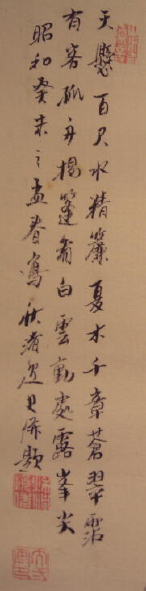 天懸百尺水精簾夏木千章蒼翠霑
有客孤舟揭篷看白雲動處露峯尖
昭和癸未之孟春寫 史併題